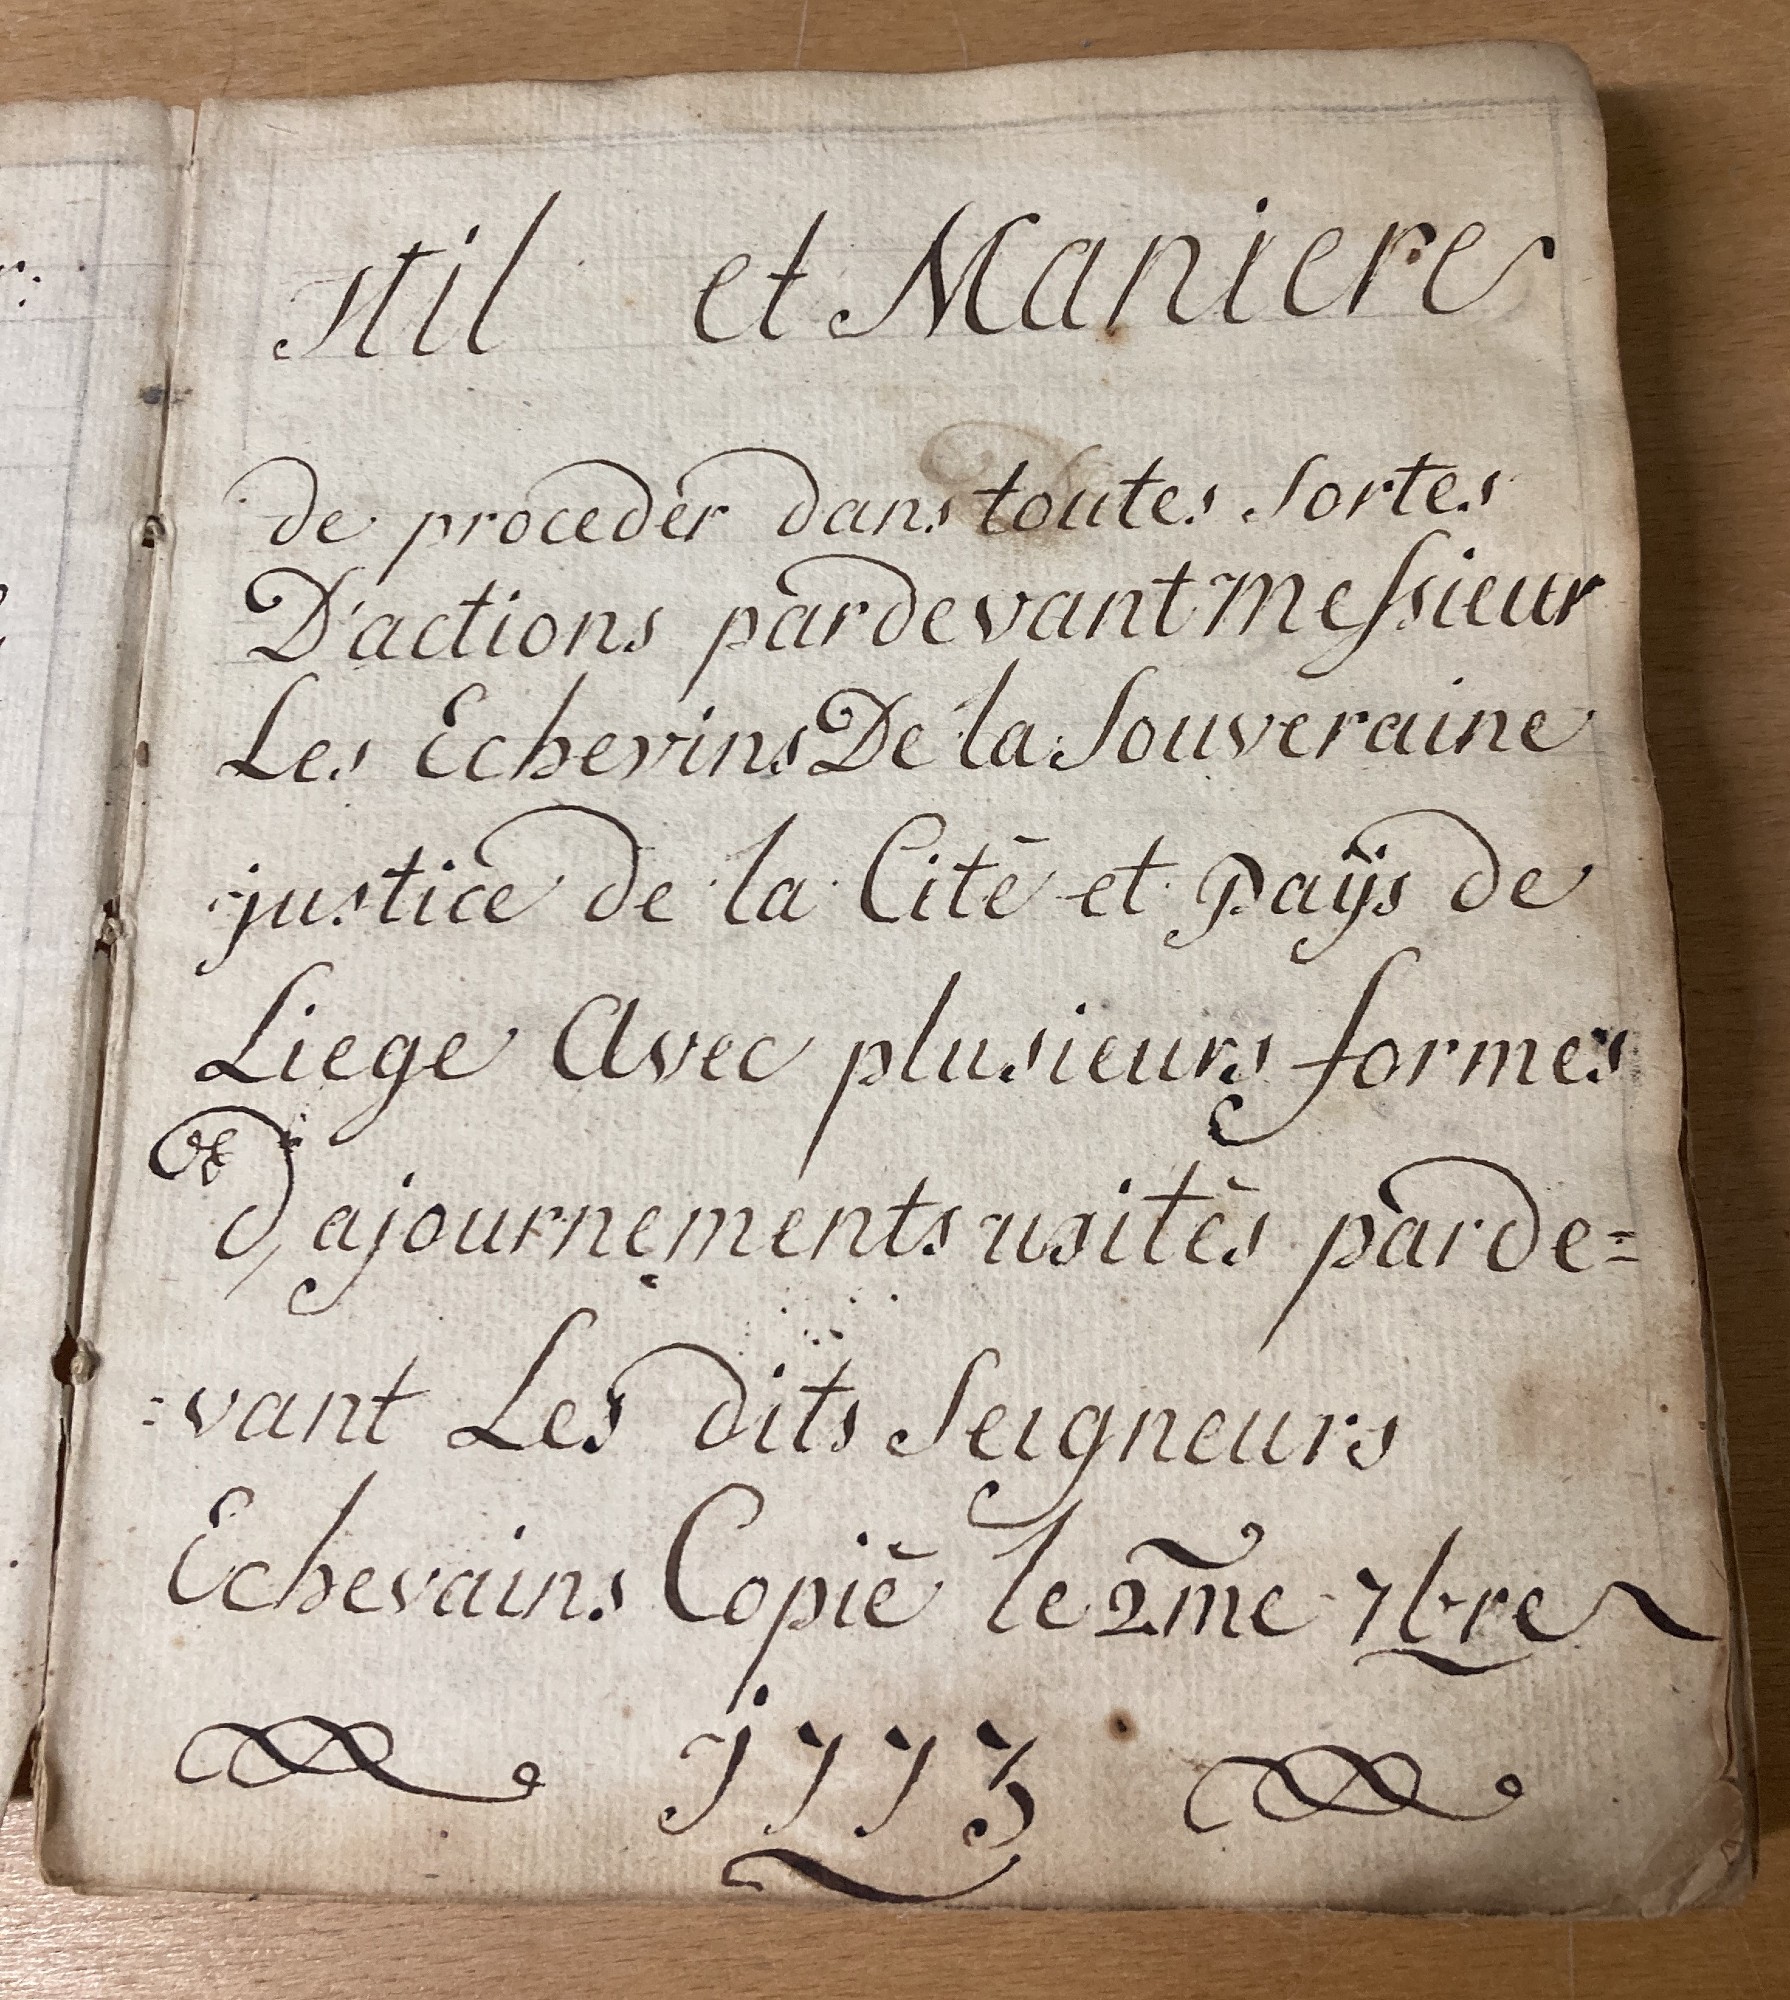 Stil et Maniere
de proceder dans toutes Sortes
D'actions pardevant Messieur
Les Echevins De la Souveraine
justice de la Cité et Païjs de
Liege Avec plusieurs formes
d'ajournements usités parde=
=vant Les dits Seigneurs
Echevains Copié le 2me 7bre
1773